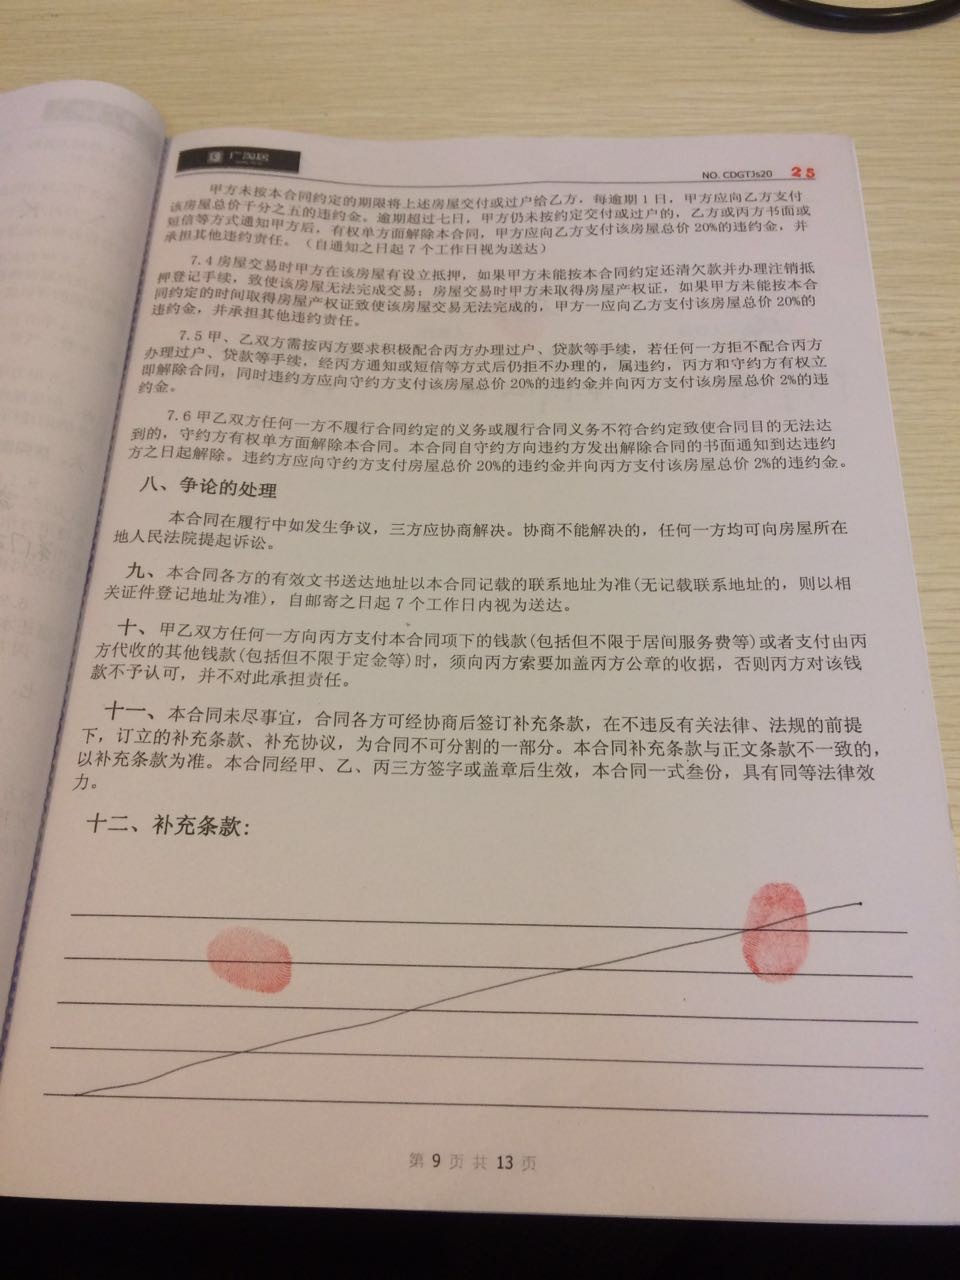 广淘居
NO. CDGTJs20 25
甲方未按本合同约定的期限将上述房屋交付或过户给乙方，每逾期1日，甲方应向乙方支付
该房屋总价千分之五的违约金。逾期超过七日，甲方仍未按约定交付或过户的，乙方或丙方书面或
短信等方式通知甲方后，有权单方面解除本合同，甲方应向乙方支付该房屋总价20%的违约金，并
承担其他违约责任。（自通知之日起7个工作日视为送达）
7.4 房屋交易时甲方在该房屋有设立抵押，如果甲方未能按本合同约定还清欠款并办理注销抵
押登记手续，致使该房屋无法完成交易；房屋交易时甲方未取得房屋产权证，如果甲方未能按本合
同约定的时间取得房屋产权证致使该房屋交易无法完成的，甲方一应向乙方支付该房屋总价20%的
违约金，并承担其他违约责任。
7.5 甲、乙双方需按丙方要求积极配合丙方办理过户、贷款等手续，若任何一方拒不配合丙方
办理过户、贷款等手续，经丙方通知或短信等方式后仍拒不办理的，属违约，丙方和守约方有权立
即解除合同，同时违约方应向守约方支付该房屋总价20%的违约金并向丙方支付该房屋总价2%的违
约金。
7.6 甲乙双方任何一方不履行合同约定的义务或履行合同义务不符合约定致使合同目的无法达
到的，守约方有权单方面解除本合同。本合同自守约方向违约方发出解除合同的书面通知到达违约
方之日起解除。违约方应向守约方支付房屋总价20%的违约金并向丙方支付该房屋总价2%的违约金。
八、争论的处理
本合同在履行中如发生争议，三方应协商解决。协商不能解决的，任何一方均可向房屋所在
地人民法院提起诉讼。
九、本合同各方的有效文书送达地址以本合同记载的联系地址为准(无记载联系地址的，则以相
关证件登记地址为准)，自邮寄之日起7个工作日内视为送达。
十、甲乙双方任何一方向丙方支付本合同项下的钱款(包括但不限于居间服务费等)或者支付由丙
方代收的其他钱款(包括但不限于定金等)时，须向丙方索要加盖丙方公章的收据，否则丙方对该钱
款不予认可，并不对此承担责任。
十一、本合同未尽事宜，合同各方可经协商后签订补充条款，在不违反有关法律、法规的前提
下，订立的补充条款、补充协议，为合同不可分割的一部分。本合同补充条款与正文条款不一致的，
以补充条款为准。本合同经甲、乙、丙三方签字或盖章后生效，本合同一式叁份，具有同等法律效
力。
十二、补充条款:
第 9 页 共 13 页